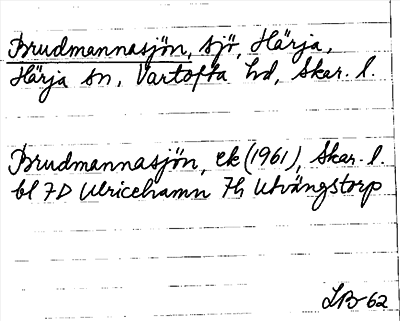 Brudmannasjön, sjö, Härja,
Härja sn, Vartofta hd, Skar. l.
Brudmannasjön, ek (1961), Skar. l.
bl 7D Ulricehamn 7h Utvängstorp
LB-62